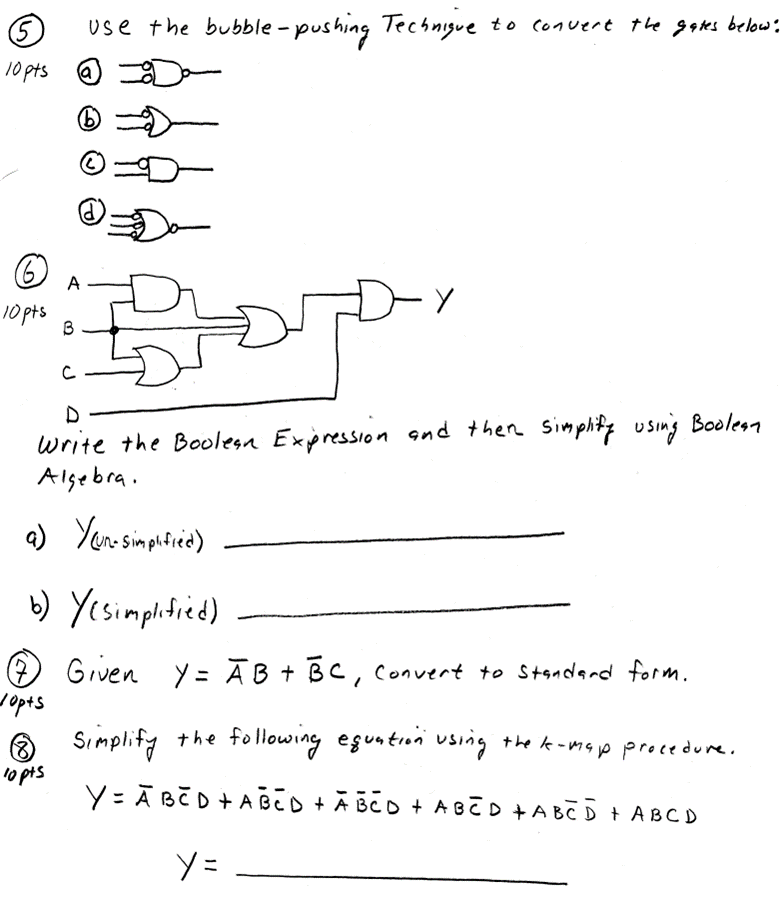 ⑤ Use the bubble-pushing Technique to convert the gates below:
10pts ⓐ
ⓑ
ⓒ
ⓓ
⑥
A
10pts
B
Y
C
D
Write the Boolean Expression and then simplify using Boolean
Algebra.
a) Y(un-simplified)
b) Y(simplified)
⑦ Given Y = A̅B + B̅C, Convert to standard form.
10pts
⑧ Simplify the following equation using the k-map procedure.
10pts
Y = A̅BC̅D + AB̅C̅D + A̅B̅C̅D + ABC̅D + ABC̅D̅ + ABCD
Y =